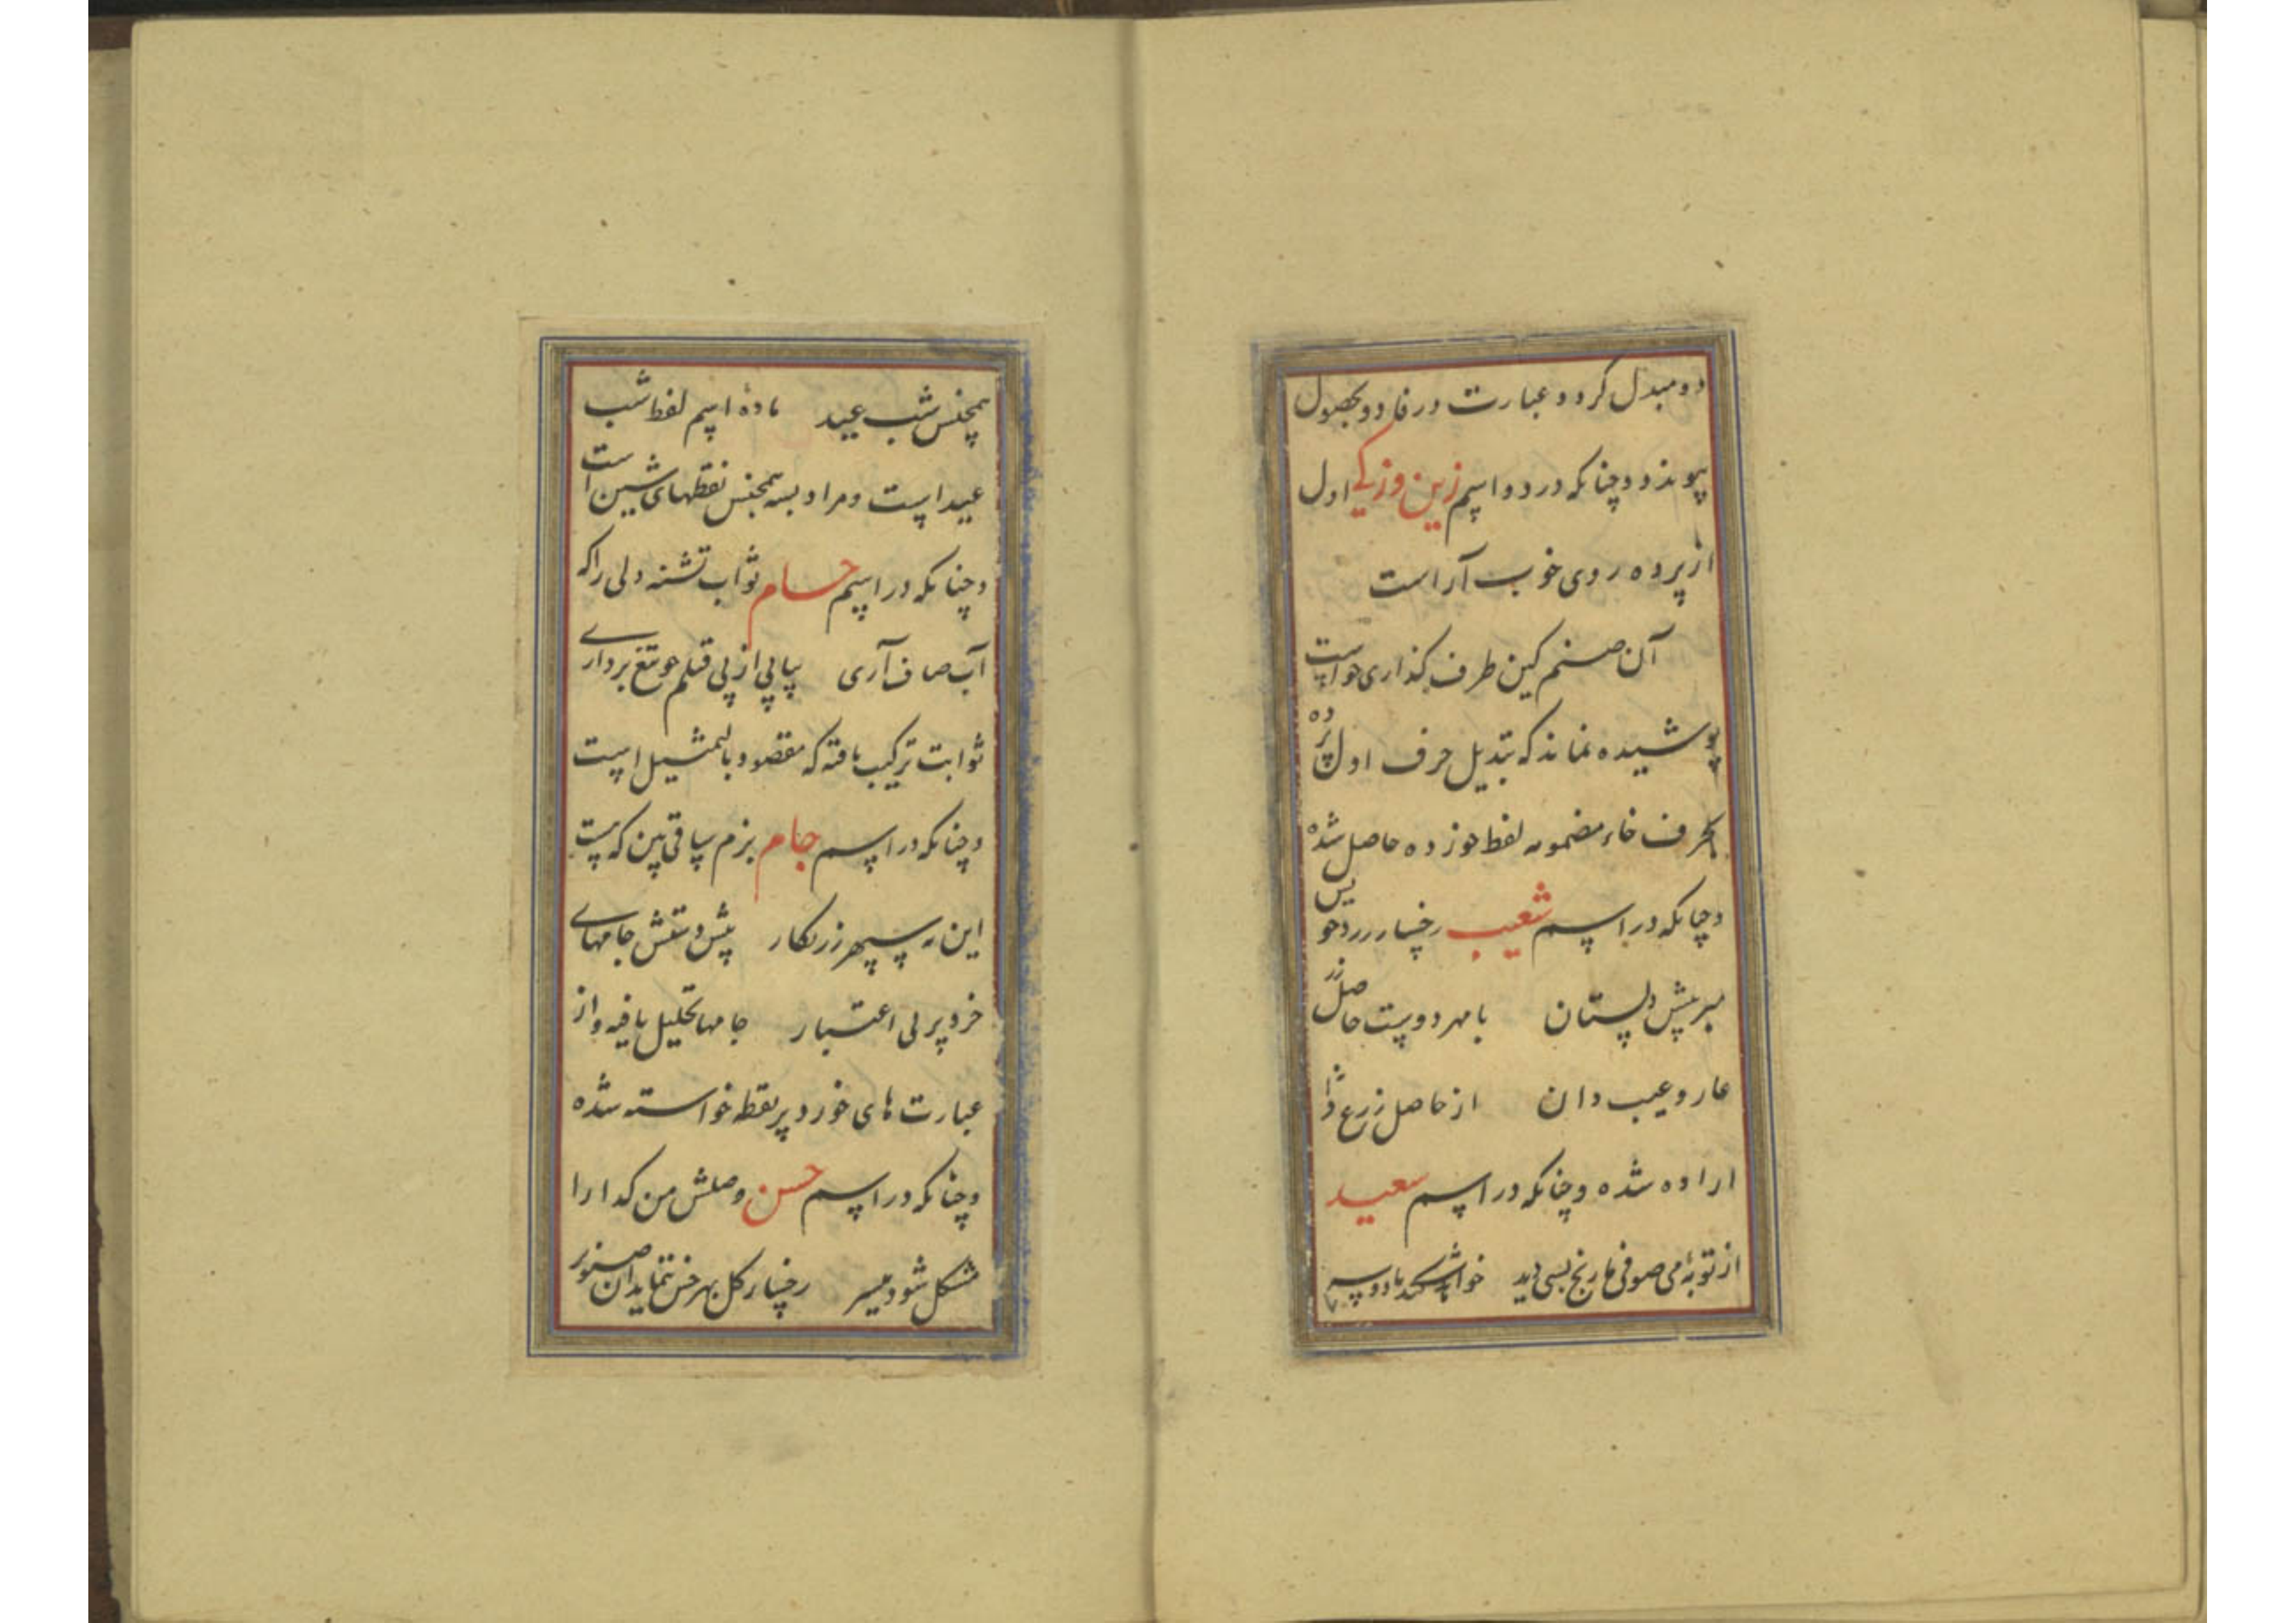 دو مبدل کردد و عبارت در فا دو بحصول
پیوندد و چنانکه در دو اسم زین و زکی اول
از پرده روی خوب آراست
آن صنم کین طرف گذاری خواست
پوشیده نماند که تبدیل حرف اول پرده
بحرف خاء مضمومه لفظ خوزده حاصل شده
و چنانکه در اسم شعیب رخسار زرد خویش
مبر پیش دلستان با مهر دوست حاصل زر
عار و عیب دان از حاصل زرع
اراده شده و چنانکه در اسم سعید
از توبهٔ می صوفی ما رنج بسی دید خواهد شکند باد و سه
همجنس شب عید مادهٔ اسم لفظ شب
عید است و مراد بسه همجنس نقطهای شین است
و چنانکه در اسم حسام ثواب تشنه دلی را که
آب صاف آری پیاپی از پی قتلم چو تیغ برداری
ثوابت ترکیب یافته که مقصود بالتمثیل است
و چنانکه در اسم جام بزم ساقی بین که هست
این نه سپهر زرنکار پیش دستش جامهای
خرد پر بی اعتبار جامها تحلیل یافته و از
عبارت های خورد پر نقطه خواسته شده
و چنانکه در اسم حسن وصلش من کدا را
مشکل شود میسر رخسار کل بهر خس ننماید ان صنوبر